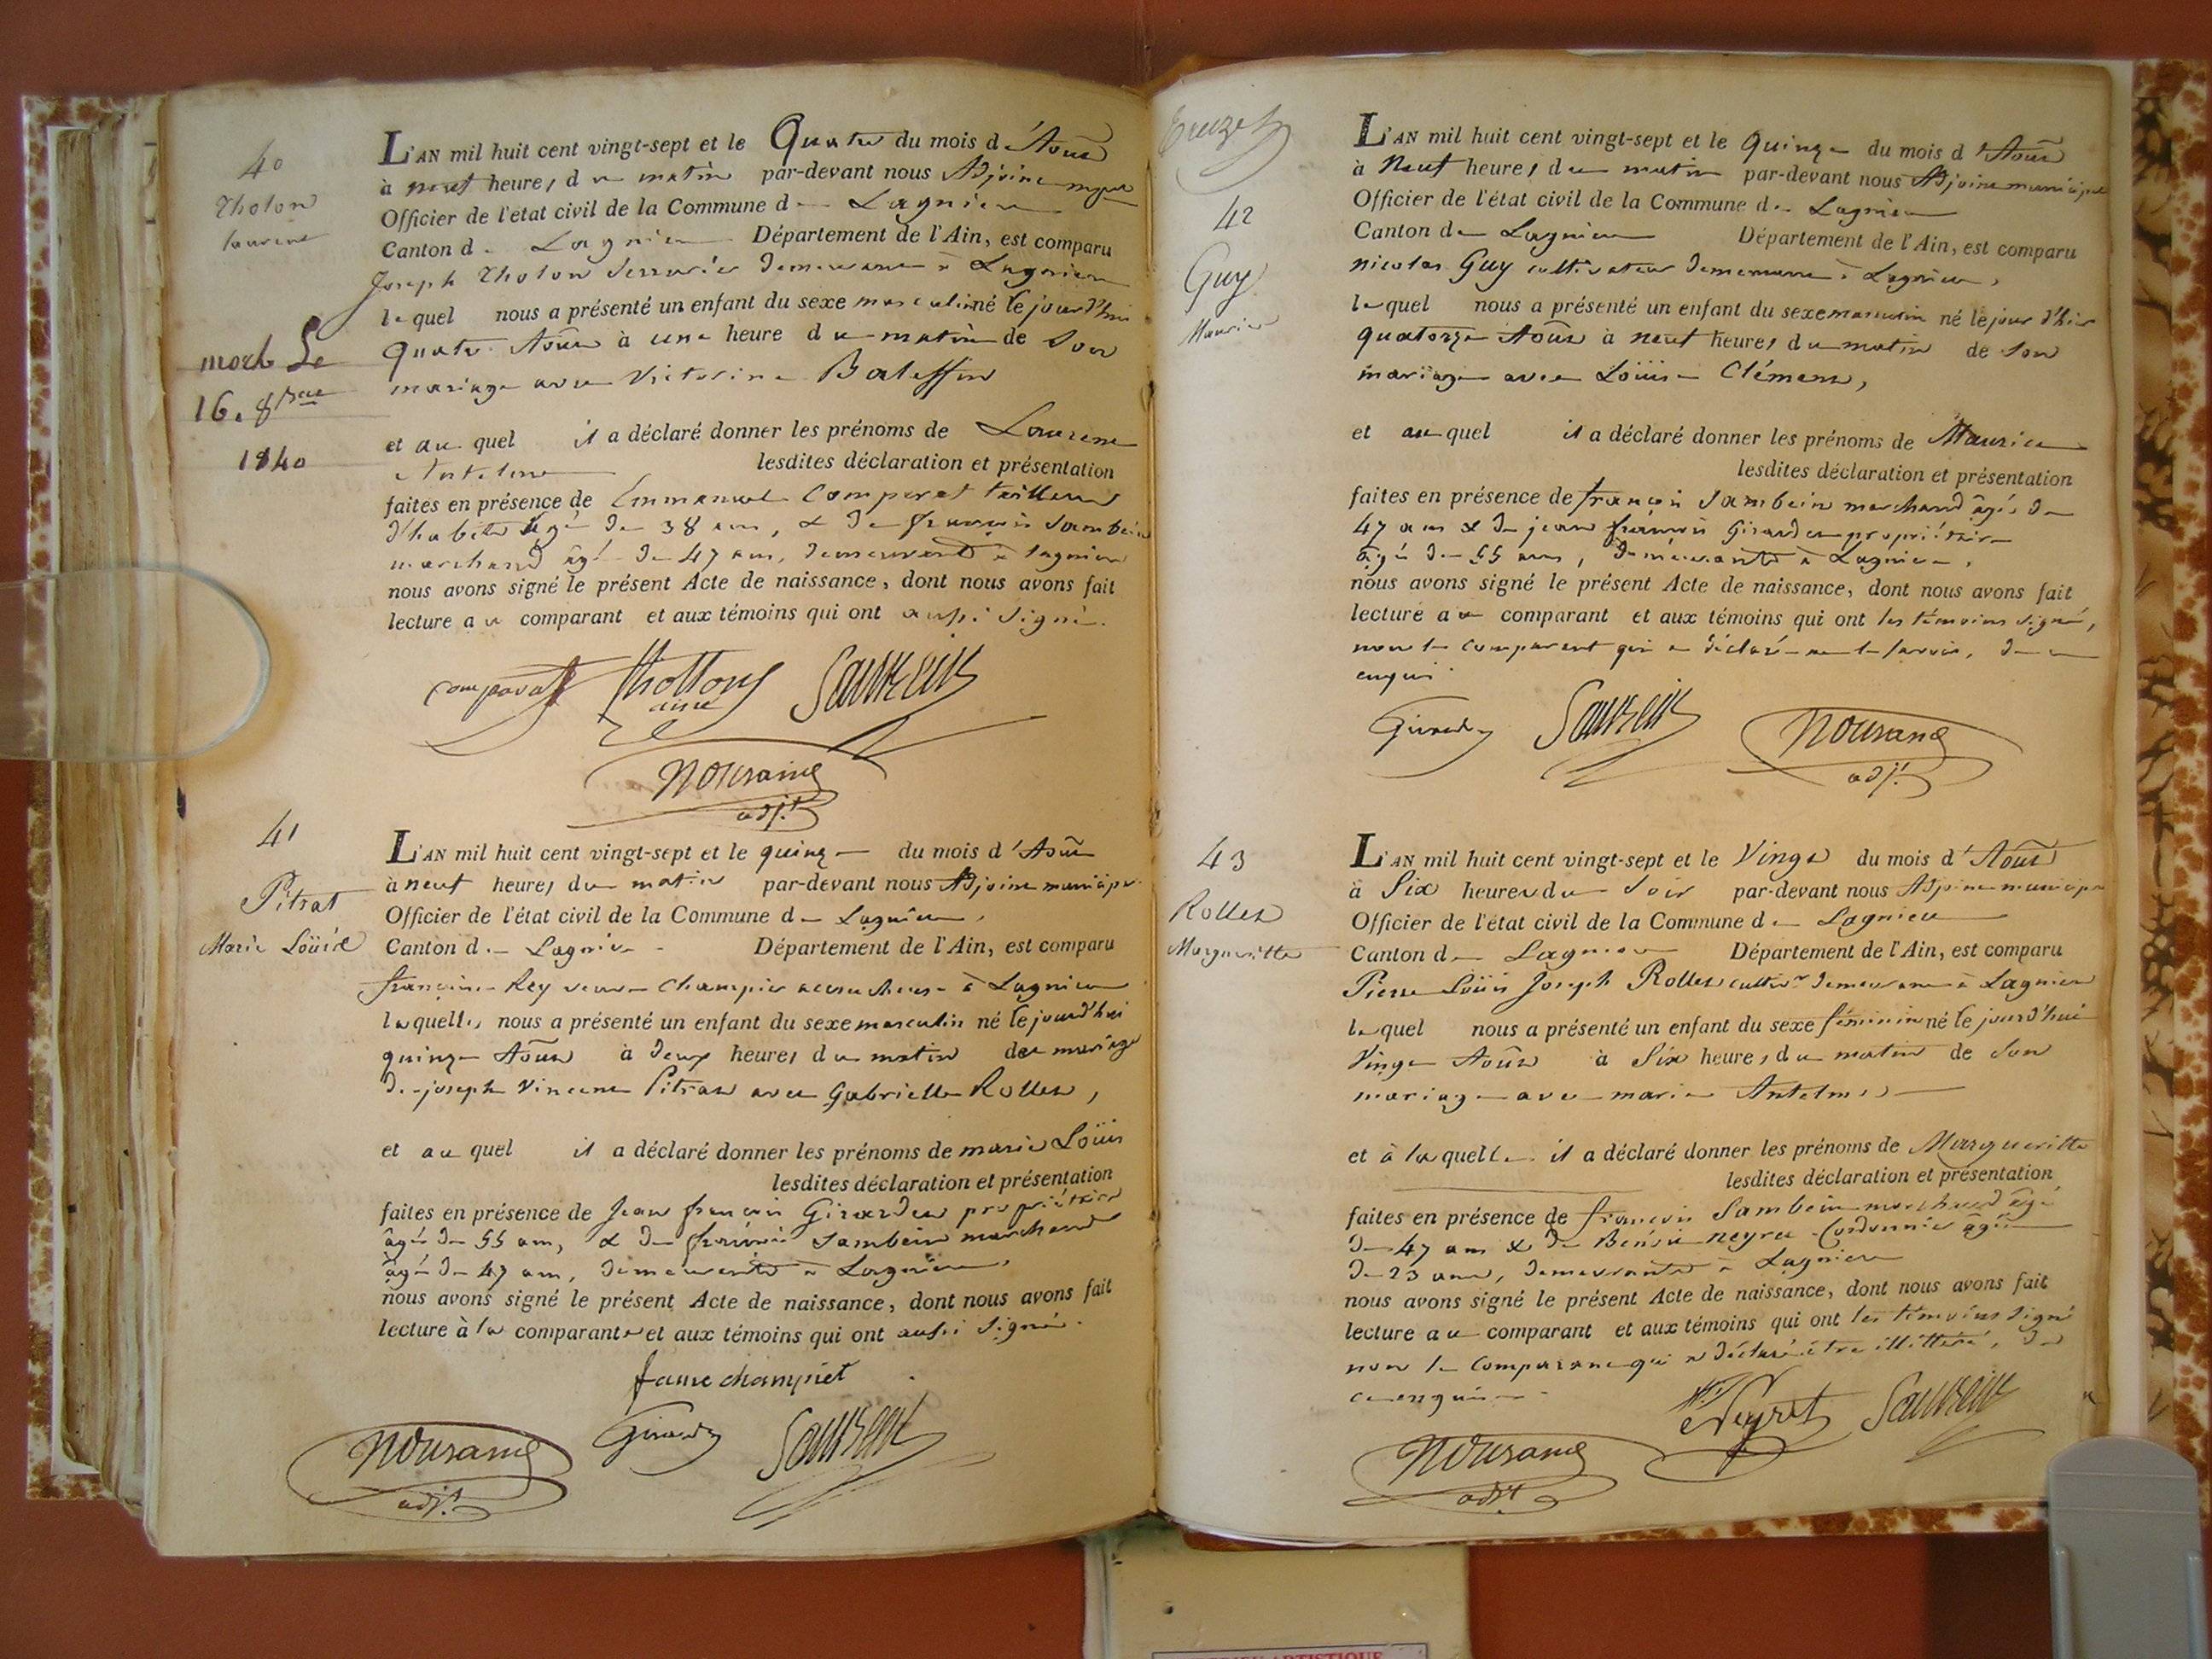 40
Tholon
laurent
mort Le
16. 8bre
1840
L'AN mil huit cent vingt-sept et le Quatre du mois d'Août
à neuf heures du matin par-devant nous Adjoint mpal
Officier de l'état civil de la Commune de Lagnieu
Canton de Lagnieu Département de l'Ain, est comparu
Joseph Tholon Serrurier demeurant à Lagnieu
lequel nous a présenté un enfant du sexe masculin né le jourd'hui
quatre Août à une heure du matin de son
mariage avec Victorine
et au quel il a déclaré donner les prénoms de Laurent
Antelme lesdites déclaration et présentation
faites en présence de Emmanuel Comparat tailleur
d'habits âgé de 38 ans, & de françois Sambein
marchand âgé de 47 ans, demeurants à lagnieu
nous avons signé le présent Acte de naissance, dont nous avons fait
lecture au comparant et aux témoins qui ont aussi signé.
comparat Thollon Sambein
ainé
adjt
41
Pitrat
Marie Loüis
L'AN mil huit cent vingt-sept et le quinze du mois d'Août
à neuf heures du matin par-devant nous Adjoint municipal
Officier de l'état civil de la Commune de Lagnieu,
Canton de Lagnieu Département de l'Ain, est comparu
françoise Rey veuve Champier accoucheuse à Lagnieu
laquelle, nous a présenté un enfant du sexe masculin né le jourd'hui
quinze Août à deux heures du matin du mariage
de joseph Vincent Pitrat avec Gabrielle Rollet,
et au quel il a déclaré donner les prénoms de marie Loüis
lesdites déclaration et présentation
faites en présence de Jean françois Girardet propriétaire
âgé de 55 ans, & de françois Sambein marchand
âgé de 47 ans, demeurants à Lagnieu,
nous avons signé le présent Acte de naissance, dont nous avons fait
lecture à la comparante et aux témoins qui ont aussi signé.
champiet
Sambein
adjt
42
Guy
Maurice
L'AN mil huit cent vingt-sept et le Quinze du mois d'Août
à Neuf heures du matin par-devant nous Adjoint municipal
Officier de l'état civil de la Commune de Lagnieu
Canton de Lagnieu Département de l'Ain, est comparu
nicolas Guy cultivateur demeurant à Lagnieu,
lequel nous a présenté un enfant du sexe masculin né le jour d'hier
quatorze Août à neuf heures du matin de son
mariage avec Loüise Clément,
et au quel il a déclaré donner les prénoms de Maurice
lesdites déclaration et présentation
faites en présence de françois Sambein marchand âgé de
47 ans & de jean françois Girardet propriétaire
âgé de 55 ans, demeurants à Lagnieu,
nous avons signé le présent Acte de naissance, dont nous avons fait
lecture au comparant et aux témoins qui ont les témoins signé,
non le comparant qui a déclaré ne le savoir, de ce
enquis
Sambein
adjt
43
Rollet
Margueritte
L'AN mil huit cent vingt-sept et le Vingt du mois d'Août
à Six heures du Soir par-devant nous Adjoint municipal
Officier de l'état civil de la Commune de Lagnieu
Canton de Lagnieu Département de l'Ain, est comparu
Pierre Loüis Joseph Rollet cultivr demeurant à Lagnieu
lequel nous a présenté un enfant du sexe féminin né le jourd'hui
Vingt Août à Six heures du matin de son
mariage avec marie Antelme
et à laquelle il a déclaré donner les prénoms de Margueritte
lesdites déclaration et présentation
faites en présence de françois Sambein marchand âgé
de 47 ans & de Benoit neyret Cordonnier âgé
de 23 ans, demeurants à Lagnieu
nous avons signé le présent Acte de naissance, dont nous avons fait
lecture au comparant et aux témoins qui ont les témoins signé
non le comparant qui a déclaré être illitteré, de
ce enquis
Neyret Sambein
adjt